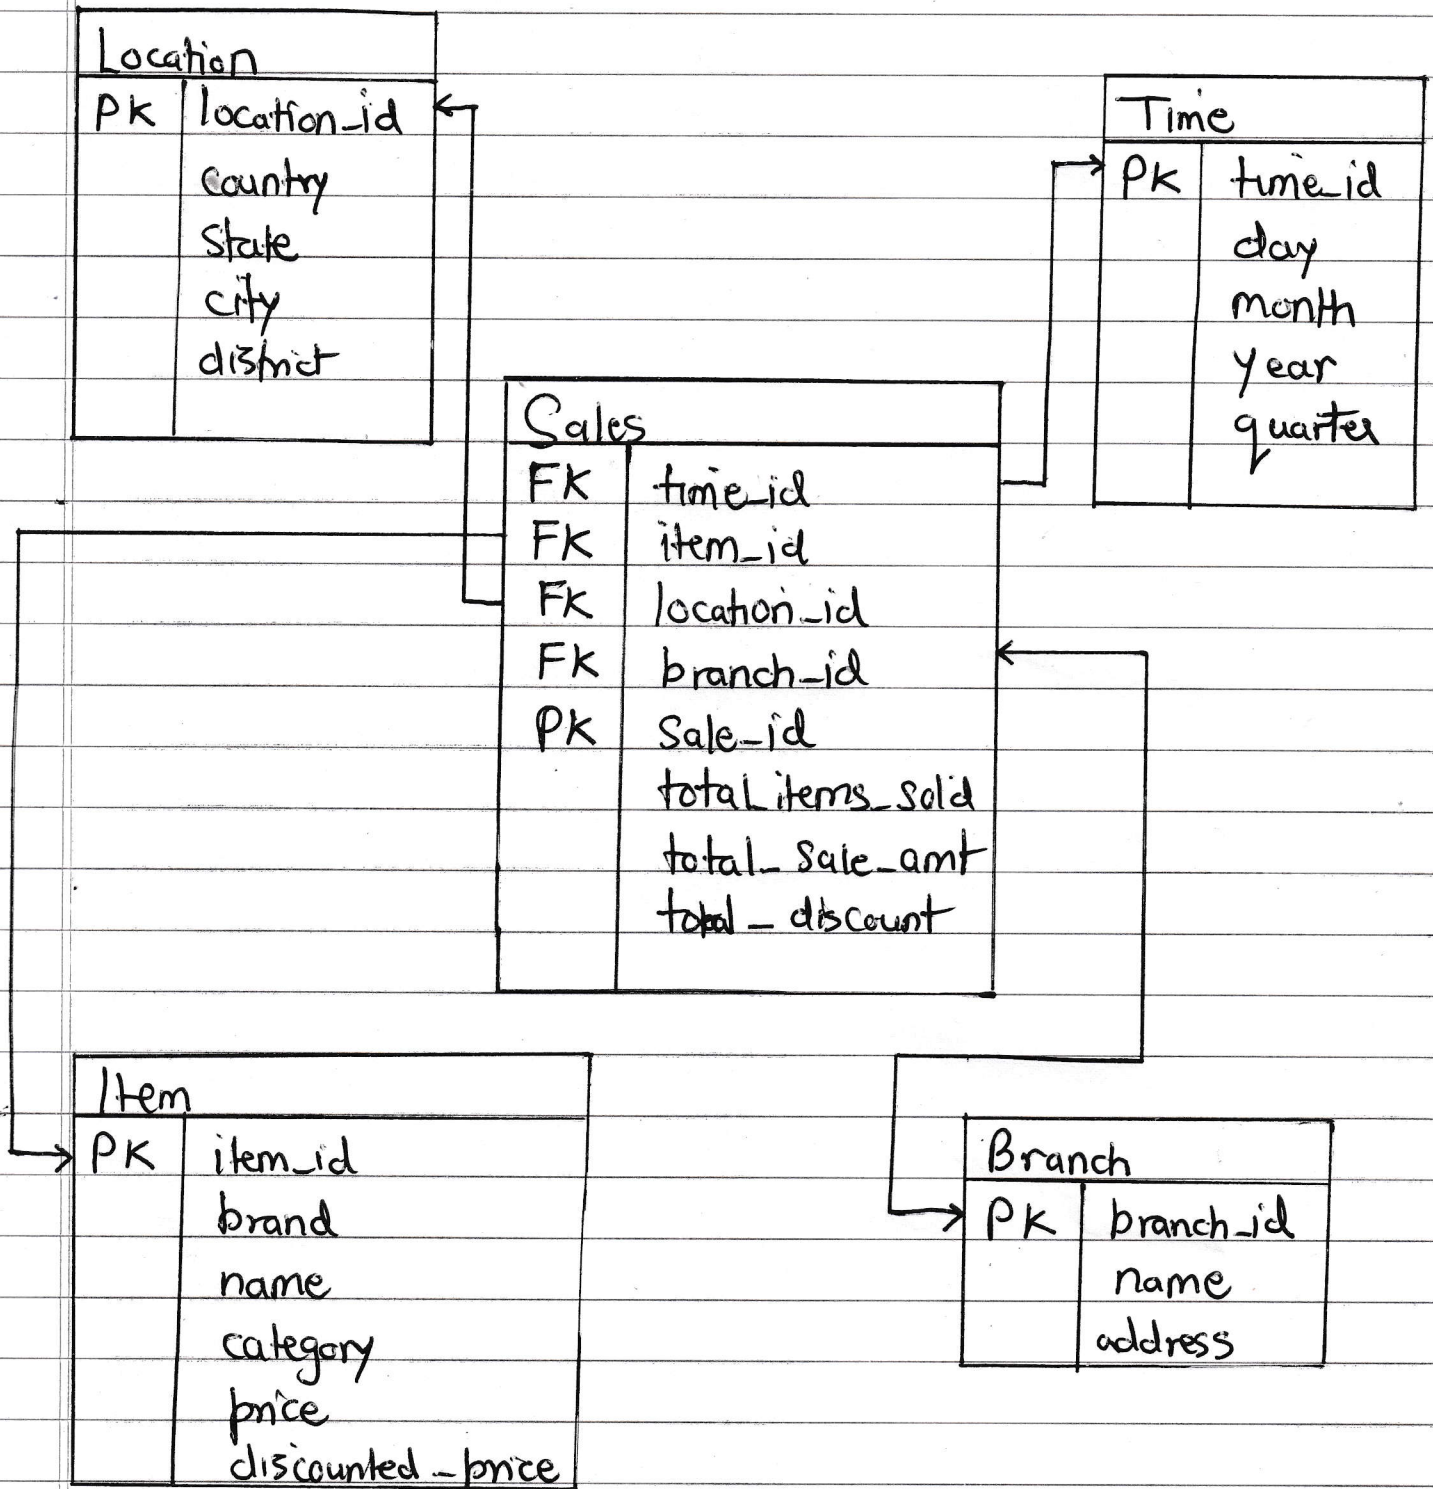 Location
PK location_id
country
state
city
district
Time
PK time_id
day
month
year
quarter
Sales
FK time_id
FK item_id
FK location_id
FK branch_id
PK Sale_id
total_items_sold
total_sale_amt
total_discount
Item
PK item_id
brand
name
category
price
discounted_price
Branch
PK branch_id
name
address